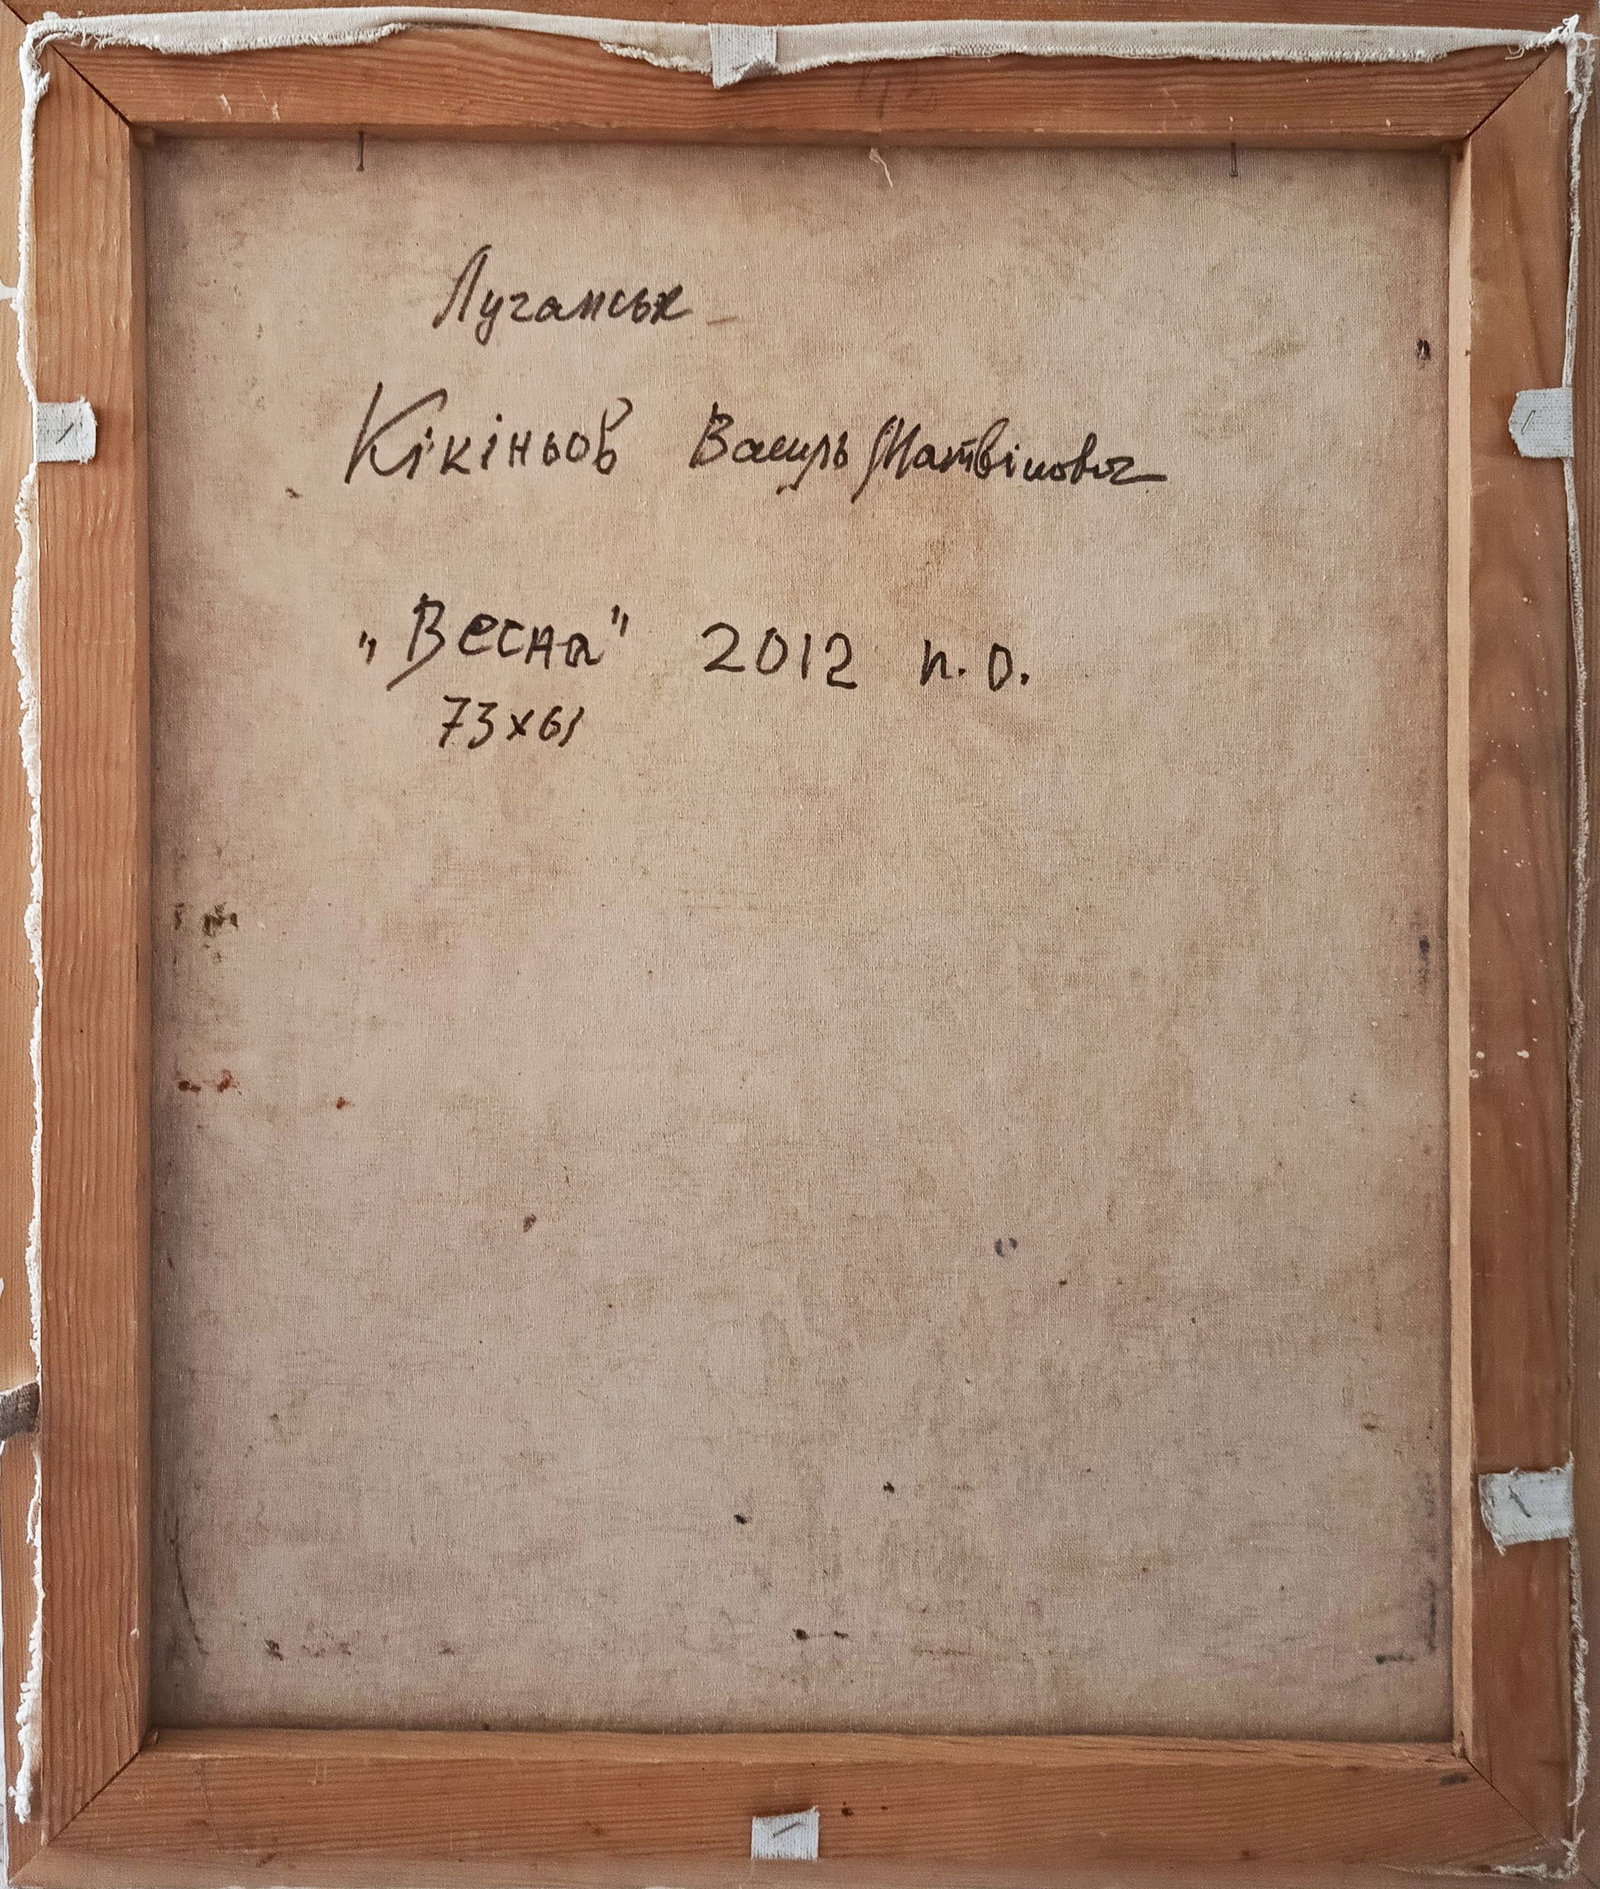 Луганськ
Кікіньов Василь Матвійович
„Весна" 2012 п.о.
73х61